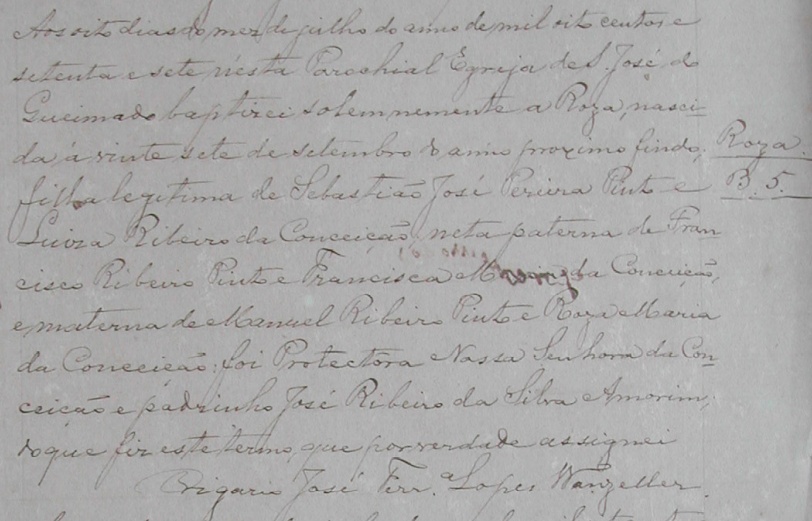 Aos oito dias do mez de julho do anno de mil oito centos e
setenta e sete n'esta Parochial Egreja de S. José do
Queimado baptizei solemnemente a Roza, nasci-
da á vinte sete de setembro do anno proximo findo,
Roza.
filha legitima de Sebastião José Pereira Pinto e
B. 5.
Luiza Ribeiro da Conceição, neta paterna de Fran
cisco Ribeiro Pinto e Francisca Maria da Conceição,
e materna de Manuel Ribeiro Pinto e Roza Maria
da Conceição: foi Protectôra Nossa Senhora da Con
ceição e padrinho José Ribeiro da Silva e Amorim;
do que fiz este termo, que por verdade assignei
O Vigario José Ferr.ª Lopes Wanzeller.